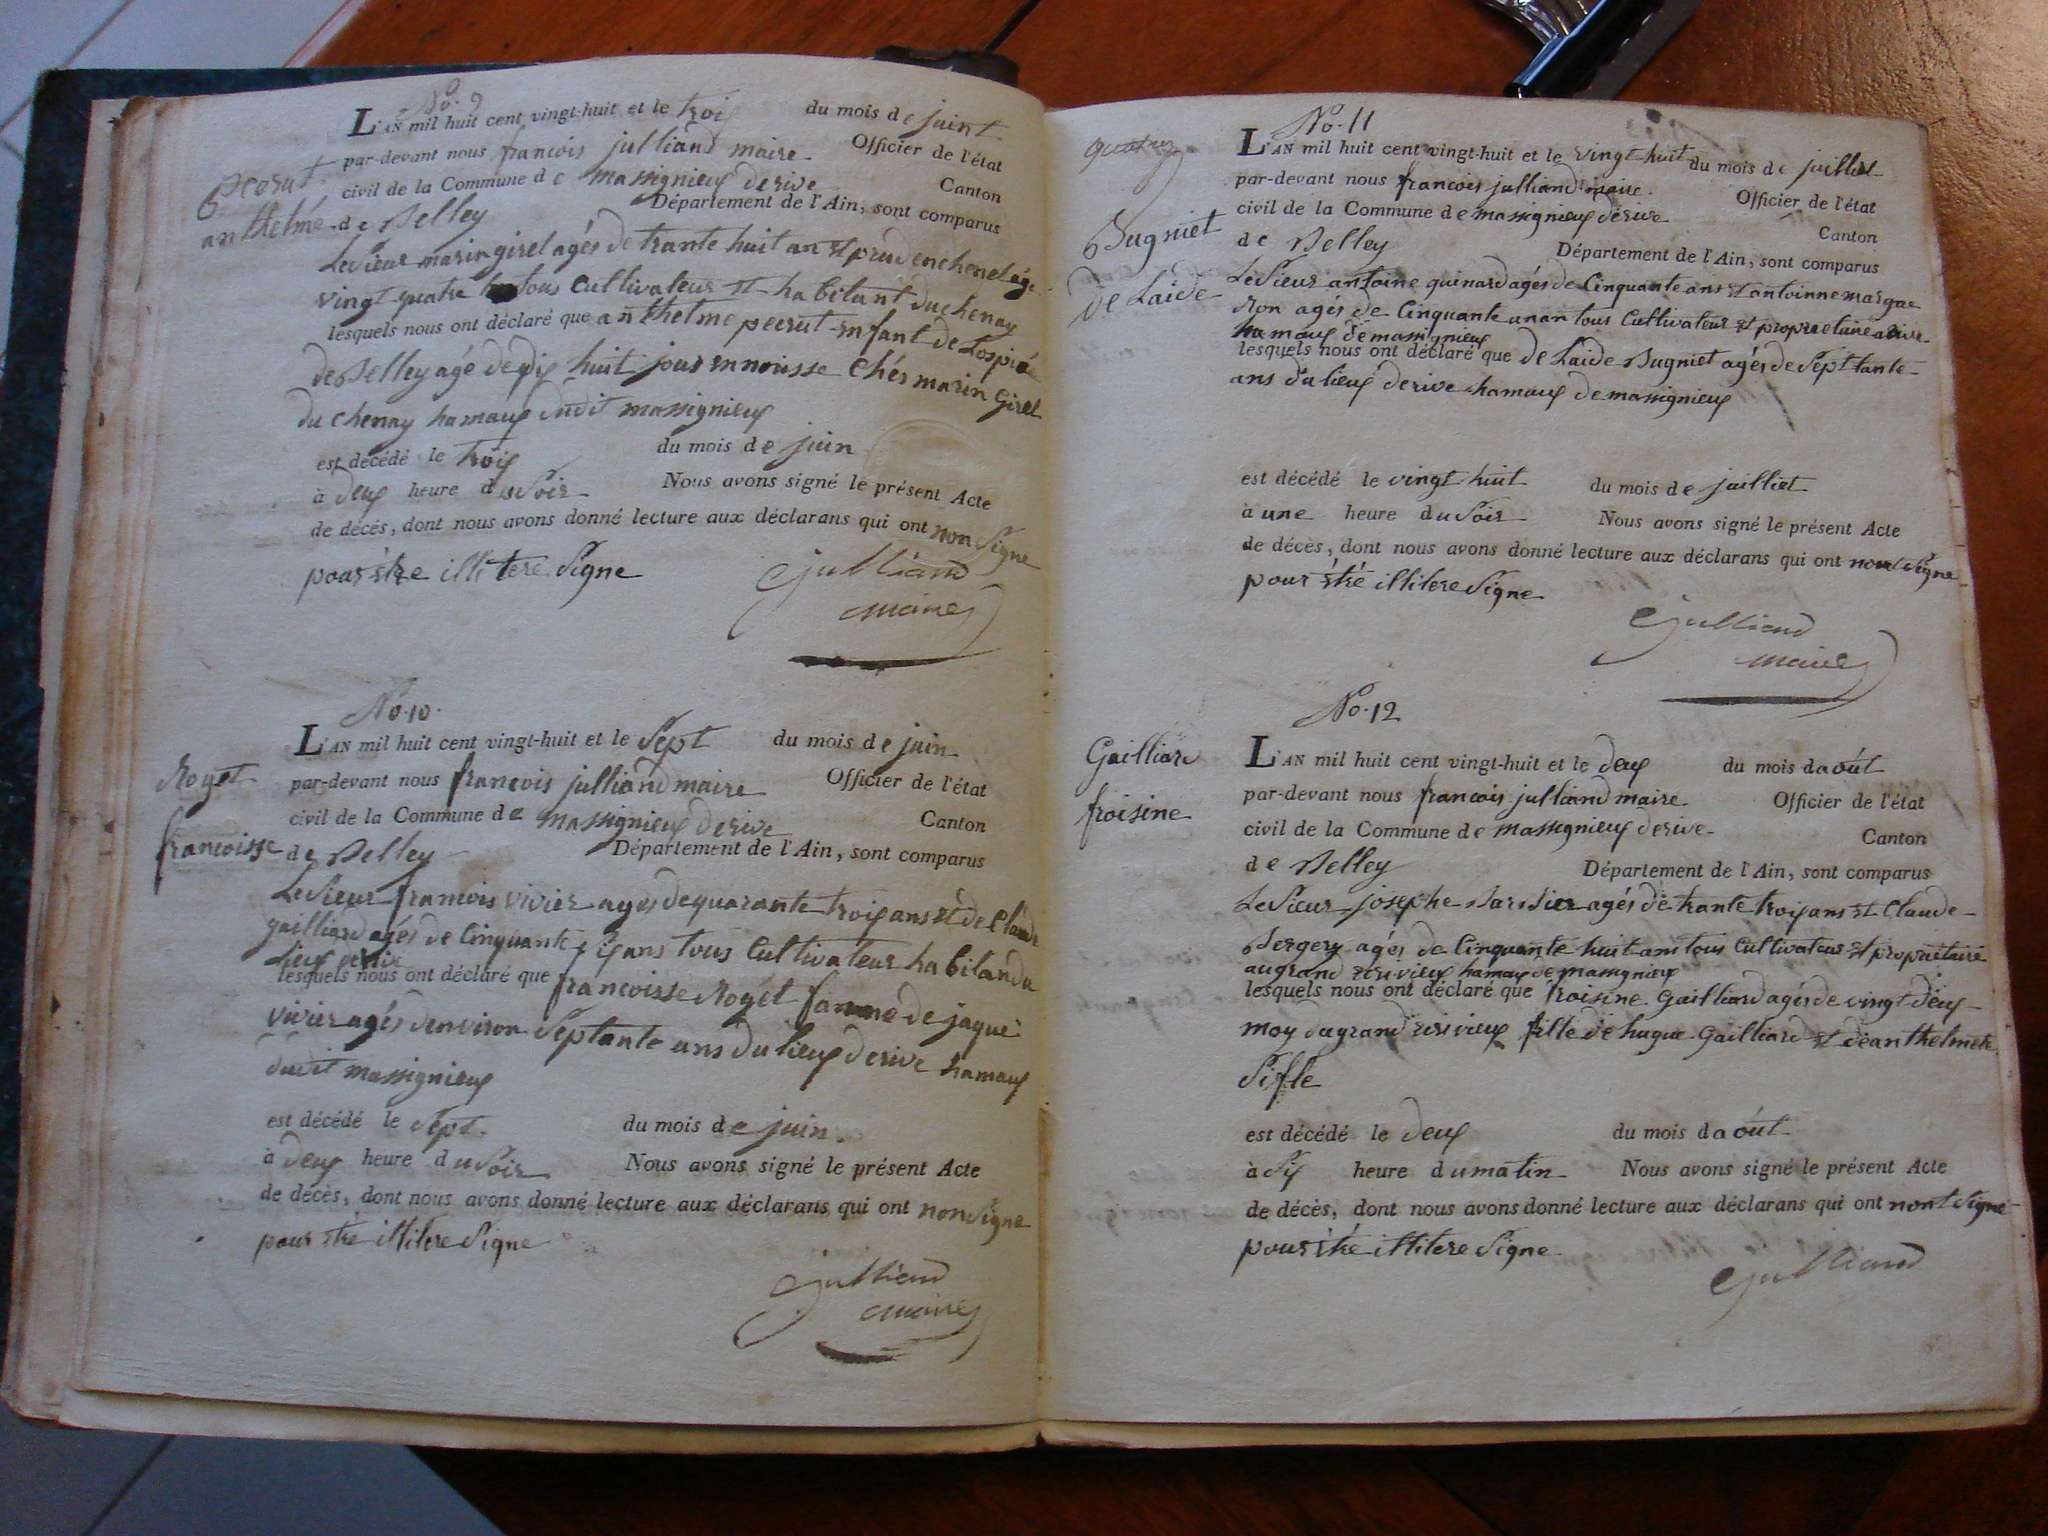 No. 9
L'AN mil huit cent vingt-huit et le trois du mois de juint
par-devant nous francois julliand maire Officier de l'état
civil de la Commune de massignieux derive Canton
de Belley Département de l'Ain, sont comparus
anthelme
Le Sieur marin girel agés de trante huit an et
vingt quatre tous Cultivateur et habitant du chenay
lesquels nous ont déclaré que anthelme pecrut enfant de Lospicé
de Belley agé de dix huit jour ennouisse Chés marin Girel
du chenay hamaux dudit massignieux
est décédé le trois du mois de juin
à deux heure du Soir Nous avons signé le présent Acte
de décès, dont nous avons donné lecture aux déclarans qui ont non Signe
pour être illitere Signe
julliand
maire
No. 10.
L'AN mil huit cent vingt-huit et le Sept du mois de juin
Roget
par-devant nous francois julliand maire Officier de l'état
civil de la Commune de massignieux derive Canton
francoisse
de Belley Département de l'Ain, sont comparus
Le Sieur francois vivier agés dequarante troisans et de Claude
gailliard agés de Cinquante sixans tous Cultivateur habilandu
lieux derive
lesquels nous ont déclaré que francoisse Roget famme de jaque
vivier agés denviron Septante ans du lieux derive hamaux
dudit massignieux
est décédé le Sept. du mois de juin
à deux heure du Soir Nous avons signé le présent Acte
de décès, dont nous avons donné lecture aux déclarans qui ont non Signe
pour être illitere Signe
julliand
maire
No. 11
L'AN mil huit cent vingt-huit et le vingt huit du mois de juilliet
par-devant nous francois julliand maire Officier de l'état
civil de la Commune de massignieux derive Canton
Bugniet
de Belley Département de l'Ain, sont comparus
de Laide
Le Sieur antoine quinard agés de Cinquante ans et antoinne margue
ron agés de Cinquante tous Cultivateur et propriétaire arive
hamaux de massignieux
lesquels nous ont déclaré que de Laide Bugniet agés de Septtante
ans du lieux derive hamaux de massignieux
est décédé le vingt huit du mois de juilliet
à une heure du Soir Nous avons signé le présent Acte
de décès, dont nous avons donné lecture aux déclarans qui ont non Signe
pour être illitere Signe
julliand
maire
No. 12
Gailliard
L'AN mil huit cent vingt-huit et le deux du mois daoút
froisine
par-devant nous francois julliand maire Officier de l'état
civil de la Commune de massignieux derive Canton
de Belley Département de l'Ain, sont comparus
Le Sieur josephe agés de trante troisans et Claude
Bergery agés de Cinquante huit ans tous Cultivateur et propriétaire
augrand hamaux de massignieux
lesquels nous ont déclaré que froisine Gailliard agés de vingt deux
moy du grand fille de hugue Gailliard et deanthelmete
Sifle
est décédé le deux du mois daoút
à Six heure dumatin Nous avons signé le présent Acte
de décès, dont nous avons donné lecture aux déclarans qui ont nont Signe
pour être illitere Signe
julliand